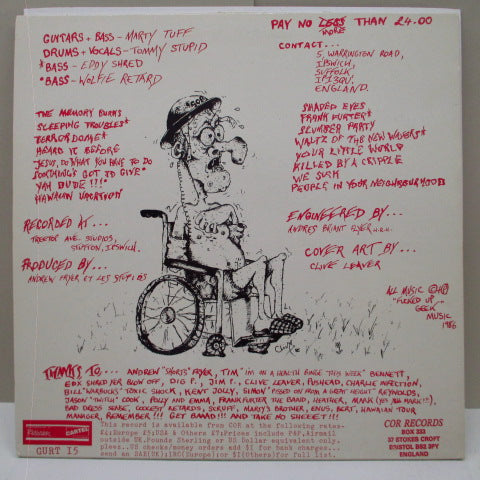 GUITARS + BASS - MARTY TUFF
DRUMS + VOCALS - TOMMY STUPID
*BASS - EDDY SHRED
*BASS - WOLFIE RETARD
PAY NO LESS THAN £4.00
MORE
CONTACT...
5, WARRINGTON ROAD,
IPSWICH,
SUFFOLK
IP1 3QU,
ENGLAND.
THE MEMORY BURNS
SLEEPING TROUBLES*
TERROR DOME*
HEARD IT BEFORE
JESUS, DO WHAT YOU HAVE TO DO
SOMETHING'S GOT TO GIVE*
YAH DUDE!!!*
HAWAIIAN VACATION
SHADED EYES
FRANKFURTER*
SLUMBER PARTY
WALTZ OF THE NEW WAVERS*
YOUR LITTLE WORLD
KILLED BY A CRIPPLE
WE SUCK
PEOPLE IN YOUR NEIGHBOURHOOD
RECORDED AT...
TREETOP AVE. STUDIOS,
STUTTON, IPSWICH.
PRODUCED BY...
ANDREW FRYER ET LES STUPIDS
ENGINEERED BY...
COVER ART BY...
CLIVE LEAVER
ALL MUSIC ©℗
"FUCKED UP
GEEK"
MUSIC
1986
THANKS TO... ANDREW "SHORTS" FRYER, TIM "I'M ON A HEALTH BINGE THIS WEEK" BENNETT,
EDX SHRED FER BLOW OFF, DIG P., JIM P., CLIVE LEAVER, PUSHEAD, CHARLIE INFECTION,
BILL "WARBUCKS" TOXIC SHOCK, KENT JOLLY, SIMON "PISSED ON FROM A GREAT HEIGHT" REYNOLDS,
JASON "TWITCH" COOK, POLLY AND EMMA, FRANKFURTER THE BAND, HEATHER, MARK (YES MARK!!!),
BAD DRESS SENSE, RETARDS, SCRUFF, MARTY'S BROTHER, ENUS, BERT, HAWAIIAN TOUR
MANAGER, REMEMBER!!! GET BAND!!! AND TAKE NO SHEEET!!!
This record is available from COR at the following rates-
outside UK.Pounds Sterling or US Dollar equivalent only
send an SAE(UK);IRC(Europe)or $I(Others)for full list.
CARTEL
GURT I5
COR RECORDS
BOX 333
37 STOKES CROFT
BRISTOL BS2 3PY
ENGLAND